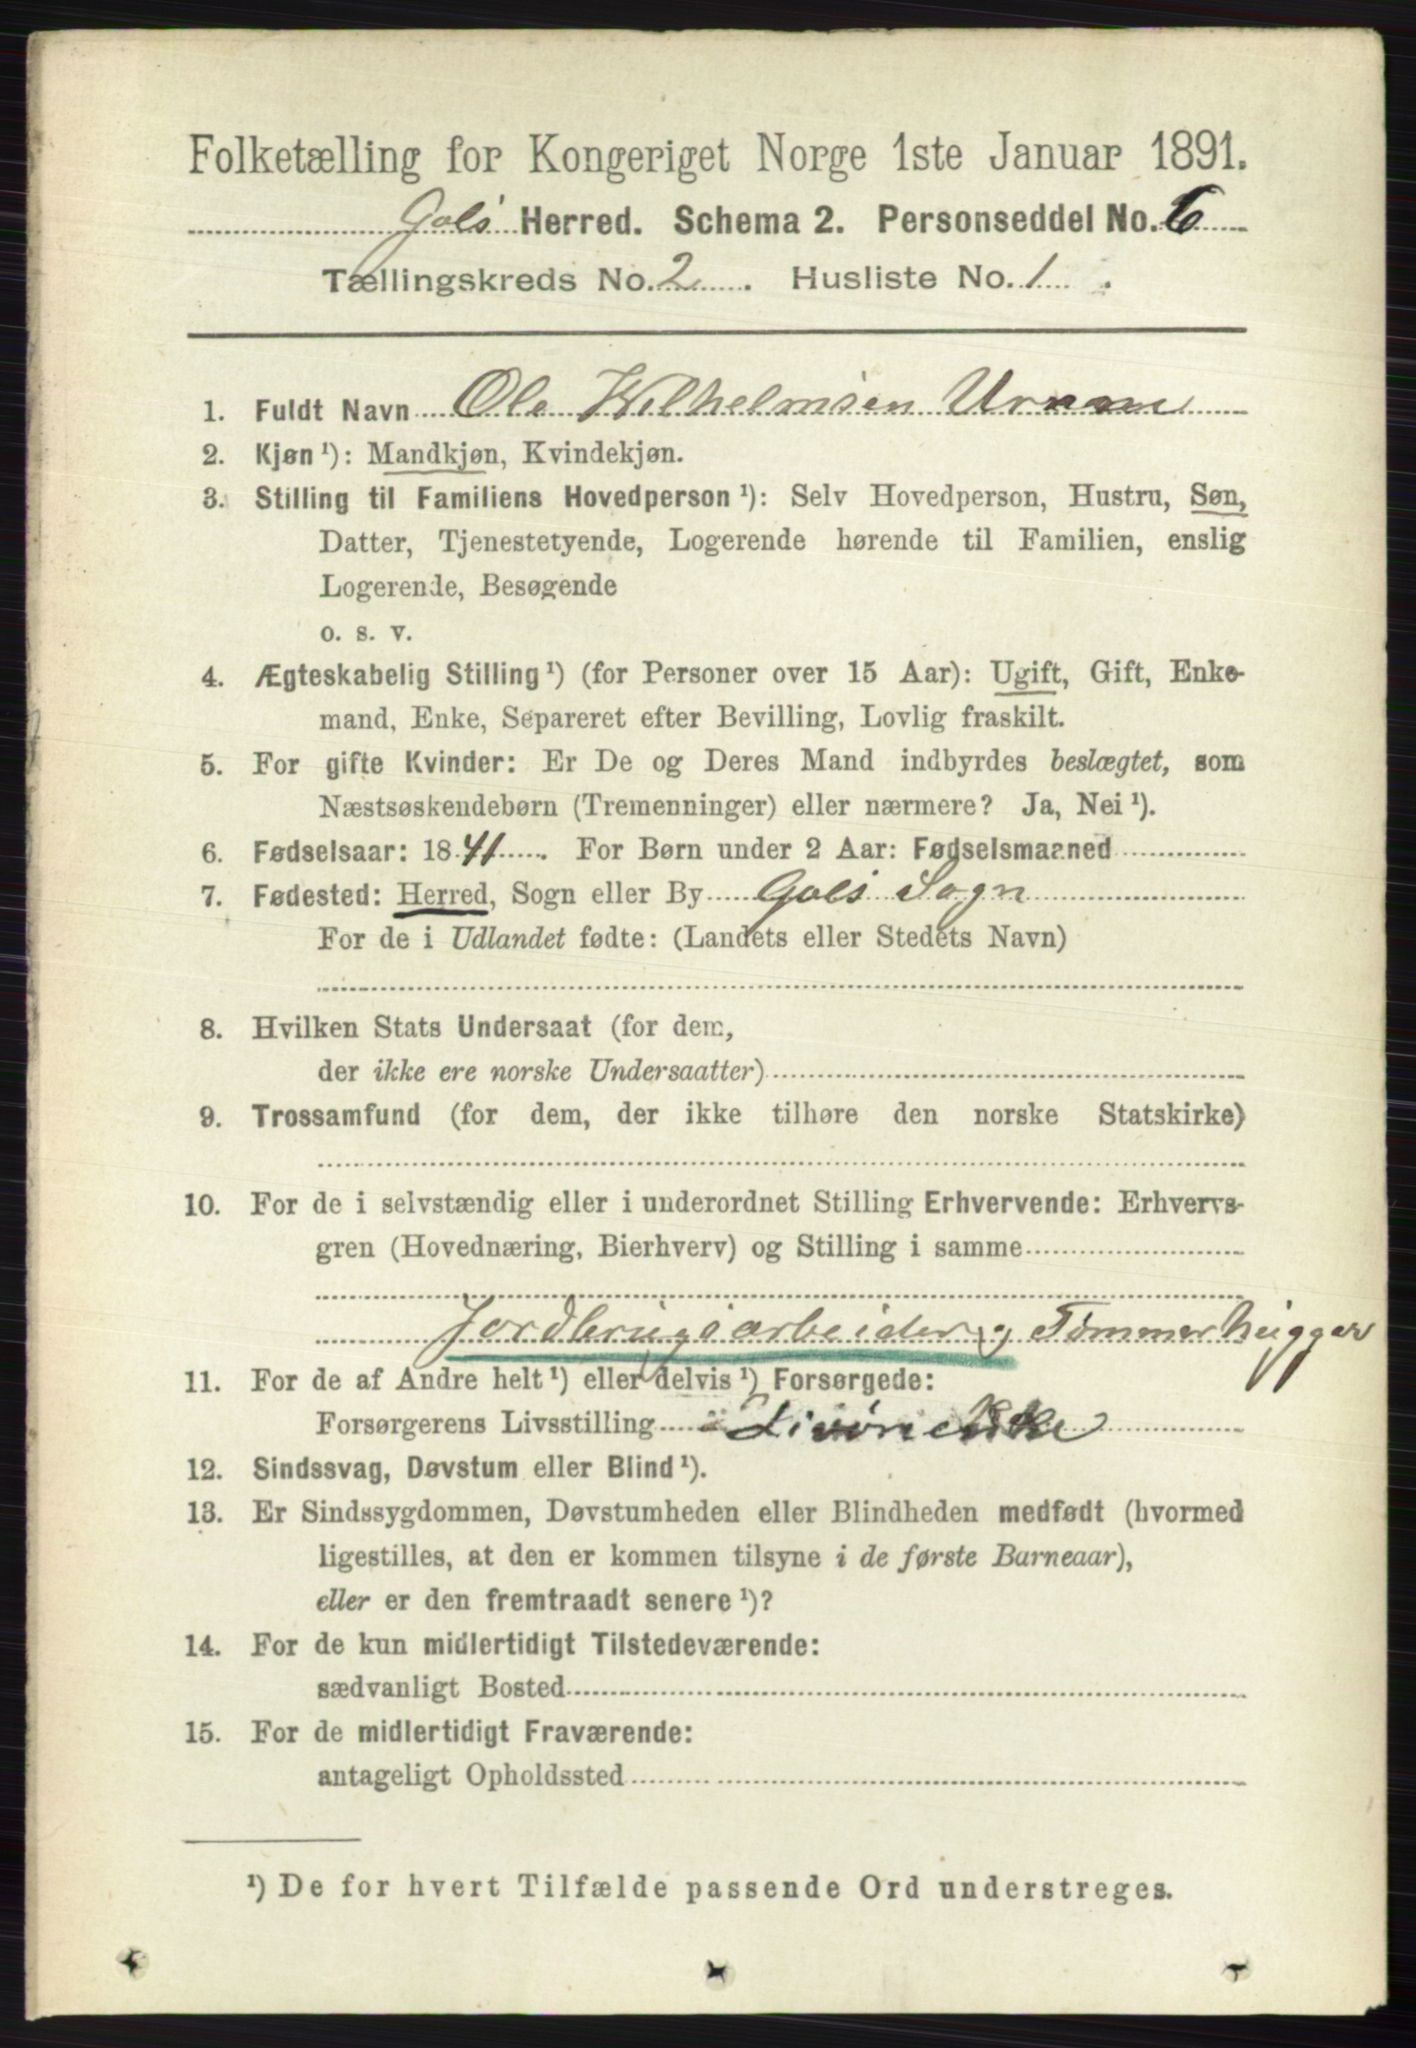 Folketælling for Kongeriget Norge 1ste Januar 1891.
Gols Herred. Schema 2. Personseddel No. 6
Tællingskreds No. 2. Husliste No. 1.
1. Fuldt Navn Ole Wilhelmsen
2. Kjøn ¹): Mandkjøn, Kvindekjøn.
3. Stilling til Familiens Hovedperson ¹): Selv Hovedperson, Hustru, Søn,
Datter, Tjenestetyende, Logerende hørende til Familien, enslig
Logerende, Besøgende
o. s. v.
4. Ægteskabelig Stilling ¹) (for Personer over 15 Aar): Ugift, Gift, Enke-
mand, Enke, Separeret efter Bevilling, Lovlig fraskilt.
5. For gifte Kvinder: Er De og Deres Mand indbyrdes beslægtet, som
Næstsøskendebørn (Tremenninger) eller nærmere? Ja, Nei ¹).
6. Fødselsaar: 1841. For Børn under 2 Aar: Fødselsmaaned
7. Fødested: Herred, Sogn eller By Gols Sogn
For de i Udlandet fødte: (Landets eller Stedets Navn)
8. Hvilken Stats Undersaat (for dem,
der ikke ere norske Undersaatter)
9. Trossamfund (for dem, der ikke tilhøre den norske Statskirke)
10. For de i selvstændig eller i underordnet Stilling Erhvervende: Erhvervs-
gren (Hovednæring, Bierhverv) og Stilling i samme
Jordbrugsarbeider og Tømmerhugger
11. For de af Andre helt ¹) eller delvis ¹) Forsørgede:
Forsørgerens Livsstilling
12. Sindssvag, Døvstum eller Blind ¹).
13. Er Sindssygdommen, Døvstumheden eller Blindheden medfødt (hvormed
ligestilles, at den er kommen tilsyne i de første Barneaar),
eller er den fremtraadt senere ¹)?
14. For de kun midlertidigt Tilstedeværende:
sædvanligt Bosted
15. For de midlertidigt Fraværende:
antageligt Opholdssted
¹) De for hvert Tilfælde passende Ord understreges.